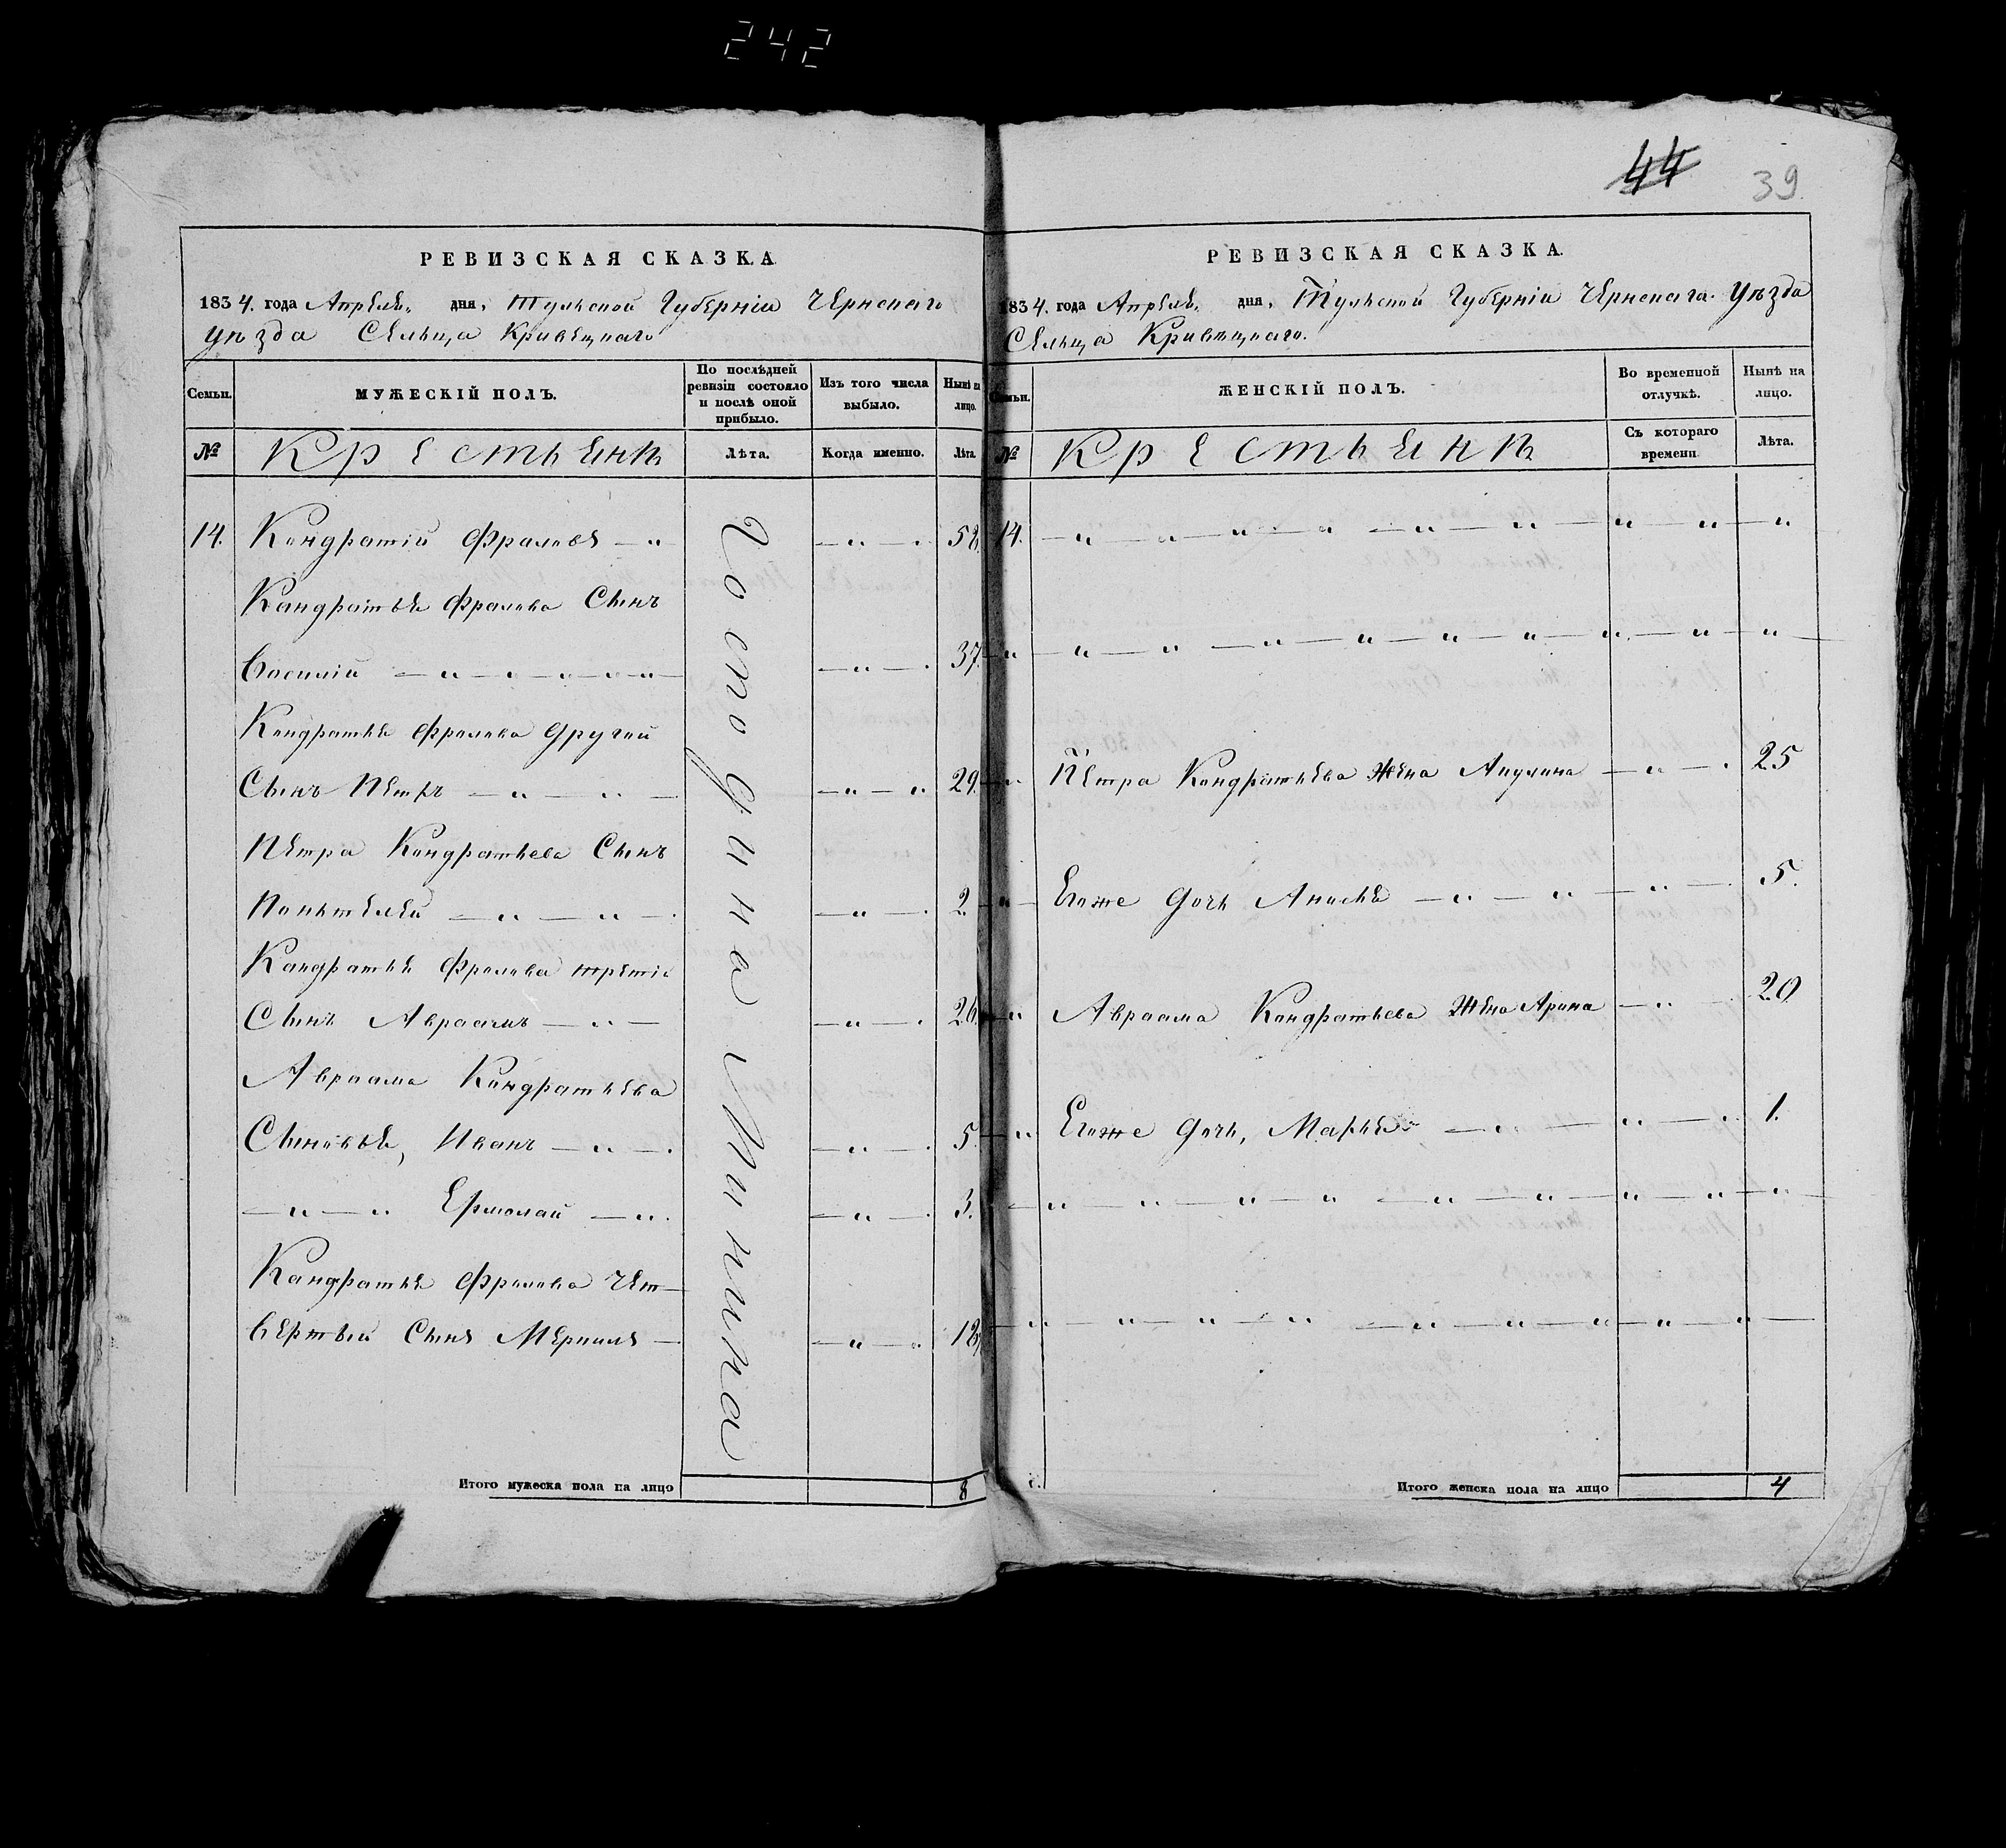 242
44 39
РЕВИЗСКАЯ СКАЗКА
1834. года Апреля дня. Тульской Губерніи Чернскаго
уѣзда Сельца Кривецкаго
Семьи. МУЖЕСКІЙ ПОЛЪ. По послѣдней ревизіи состояло и послѣ оной прибыло. Изъ того числа выбыло. Нынѣ на лицо.
№ Крестьянъ Лѣта. Когда именно. Лѣта.
14. Кондратій Фраловъ 52.
Кандратья Фралова Сынъ
Василій 37.
Кондратья Фралова другой
Сынъ Петръ 29.
Петра Кондратьева Сынъ
Пантелей 2.
Кандратья Фралова третій
Сынъ Авраамъ 26.
Авраама Кондратьева
Сыновья, Иванъ 5.
Ермолай 3.
Кандратья Фралова Чет-
вертый Сынъ Меркилъ 12.
Итого мужеска пола на лицо 8
РЕВИЗСКАЯ СКАЗКА.
1834. года Апреля дня. Тульской Губерніи Чернскаго. Уѣзда
Сельца Кривецкаго.
Семьи. ЖЕНСКІЙ ПОЛЪ. Во временной отлучкѣ. Нынѣ на лицо.
№ Крестьянъ Съ котораго времени Лѣта.
14.
Петра Кондратьева Жена Акулина 25
Егоже дочь 5.
Авраама Кандратьева Жена Арина 20
Егоже дочь, Марья 1.
Итого женска пола на лицо 4